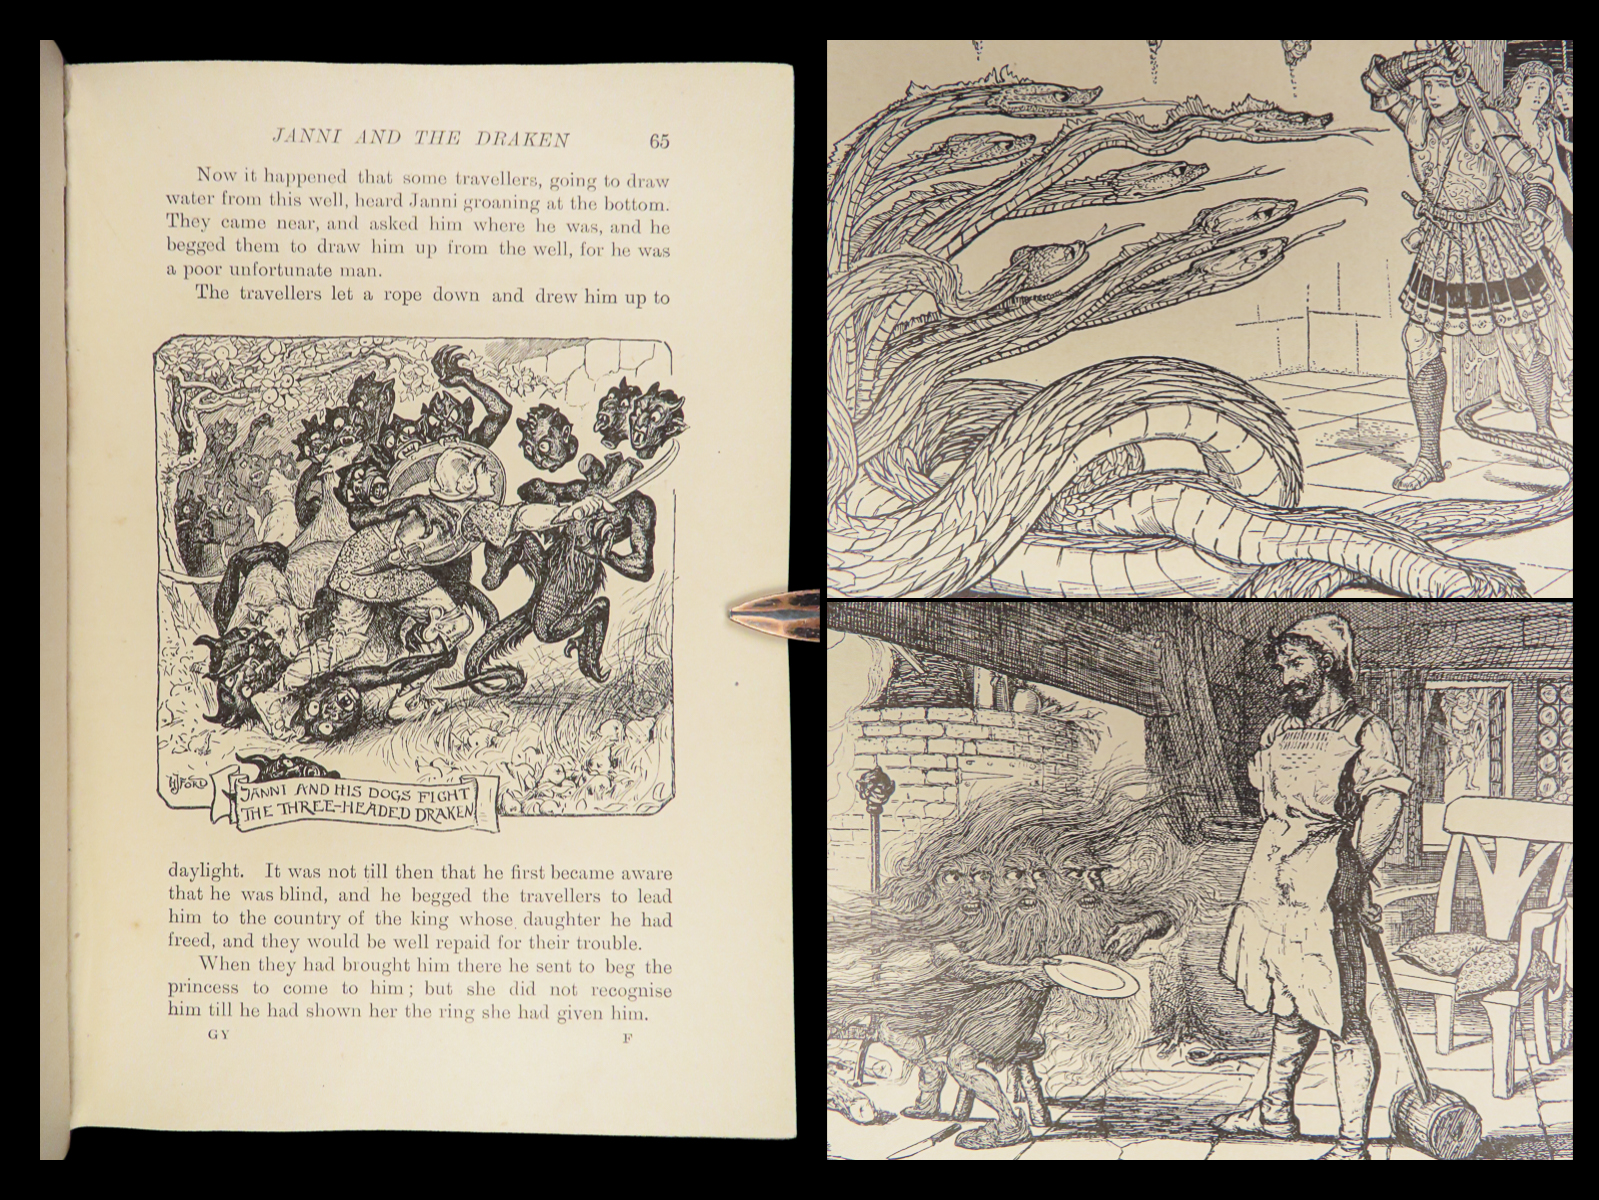 JANNI AND THE DRAKEN 65
Now it happened that some travellers, going to draw
water from this well, heard Janni groaning at the bottom.
They came near, and asked him where he was, and he
begged them to draw him up from the well, for he was
a poor unfortunate man.
The travellers let a rope down and drew him up to
HJFORD
JANNI AND HIS DOGS FIGHT
THE THREE-HEADED DRAKEN
daylight. It was not till then that he first became aware
that he was blind, and he begged the travellers to lead
him to the country of the king whose daughter he had
freed, and they would be well repaid for their trouble.
When they had brought him there he sent to beg the
princess to come to him; but she did not recognise
him till he had shown her the ring she had given him.
GY F